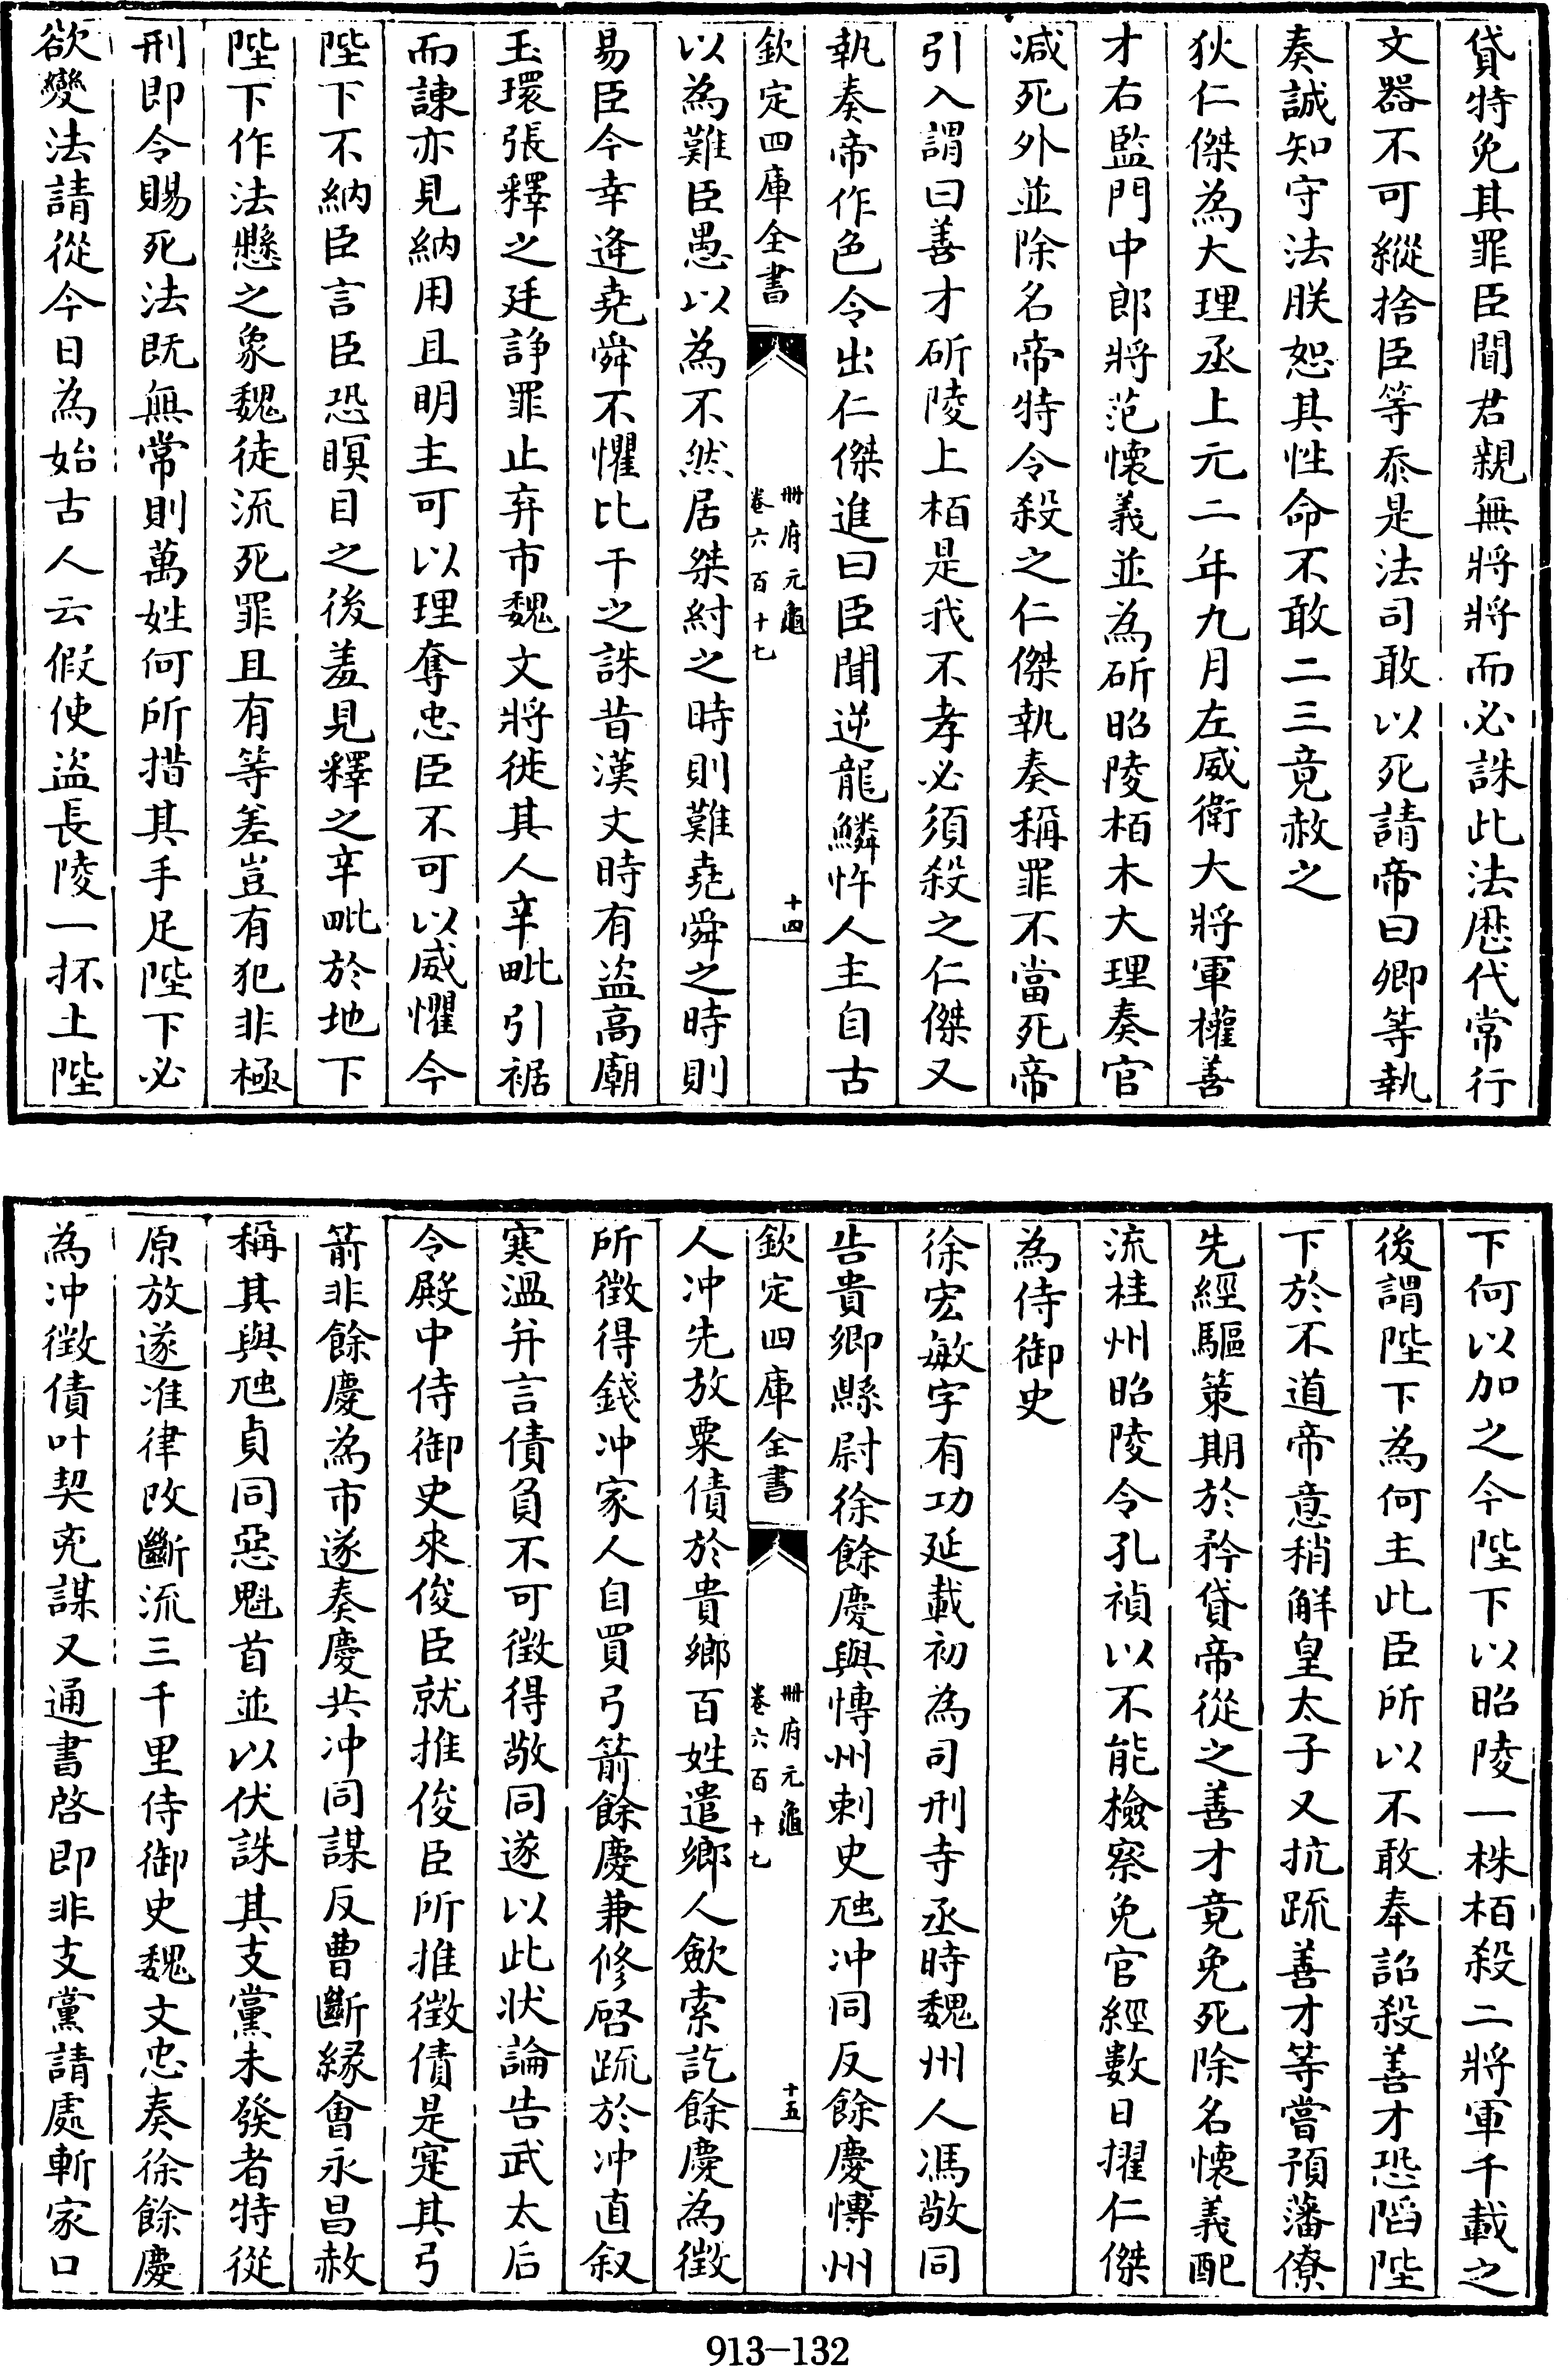 貸特免其罪臣聞君親無將將而必誅此法歴代常行
文器不可縱捨臣等忝是法司敢以死請帝曰卿等執
奏誠知守法朕恕其性命不敢二三竟赦之
狄仁傑為大理丞上元二年九月左威衛大將軍權善
才右監門中郎將范懷義並為斫昭陵栢木大理奏官
减死外並除名帝特令殺之仁傑執奏稱罪不當死帝
引入謂曰善才斫陵上栢是我不孝必須殺之仁傑又
執奏帝作色令出仁傑進曰臣聞逆龍鱗忤人主自古
欽定四庫全書
冊府元龜
卷六百十七
十四
以為難臣愚以為不然居桀紂之時則難堯舜之時則
易臣今幸逢堯舜不懼比干之誅昔漢文時有盜高廟
玉環張釋之廷諍罪止弃市魏文將徙其人辛毗引裾
而諫亦見納用且明主可以理奪忠臣不可以威懼今
陛下不納臣言臣恐瞑目之後羞見釋之辛毗於地下
陛下作法懸之象魏徒流死罪且有等差豈有犯非極
刑即令賜死法既無常則萬姓何所措其手足陛下必
欲變法請從今日為始古人云假使盜長陵一抔土陛
下何以加之今陛下以昭陵一株栢殺二將軍千載之
後謂陛下為何主此臣所以不敢奉詔殺善才恐陷陛
下於不道帝意稍解皇太子又抗疏善才等嘗預藩僚
先經驅策期於矜貸帝從之善才竟免死除名懷義配
流桂州昭陵令孔禎以不能檢察免官經數日擢仁傑
為侍御史
徐宏敏字有功延載初為司刑寺丞時魏州人馮敬同
告貴鄉縣尉徐餘慶與慱州刺史虺冲同反餘慶慱州
欽定四庫全書
冊府元龜
卷六百十七
十五
人冲先放粟債於貴鄉百姓遣鄉人歛索訖餘慶為徵
所徵得錢冲家人自買弓箭餘慶兼修啓疏於冲直叙
寒溫并言債負不可徵得敬同遂以此状論告武太后
令殿中侍御史來俊臣就推俊臣所推徵債是寔其弓
箭非餘慶為市遂奏慶共冲同謀反曹斷緣會永昌赦
稱其與虺貞同惡魁首並以伏誅其支黨未發者特從
原放遂准律改斷流三千里侍御史魏文忠奏徐餘慶
為冲徵債叶契兇謀又通書啓即非支黨請處斬家口
913-132